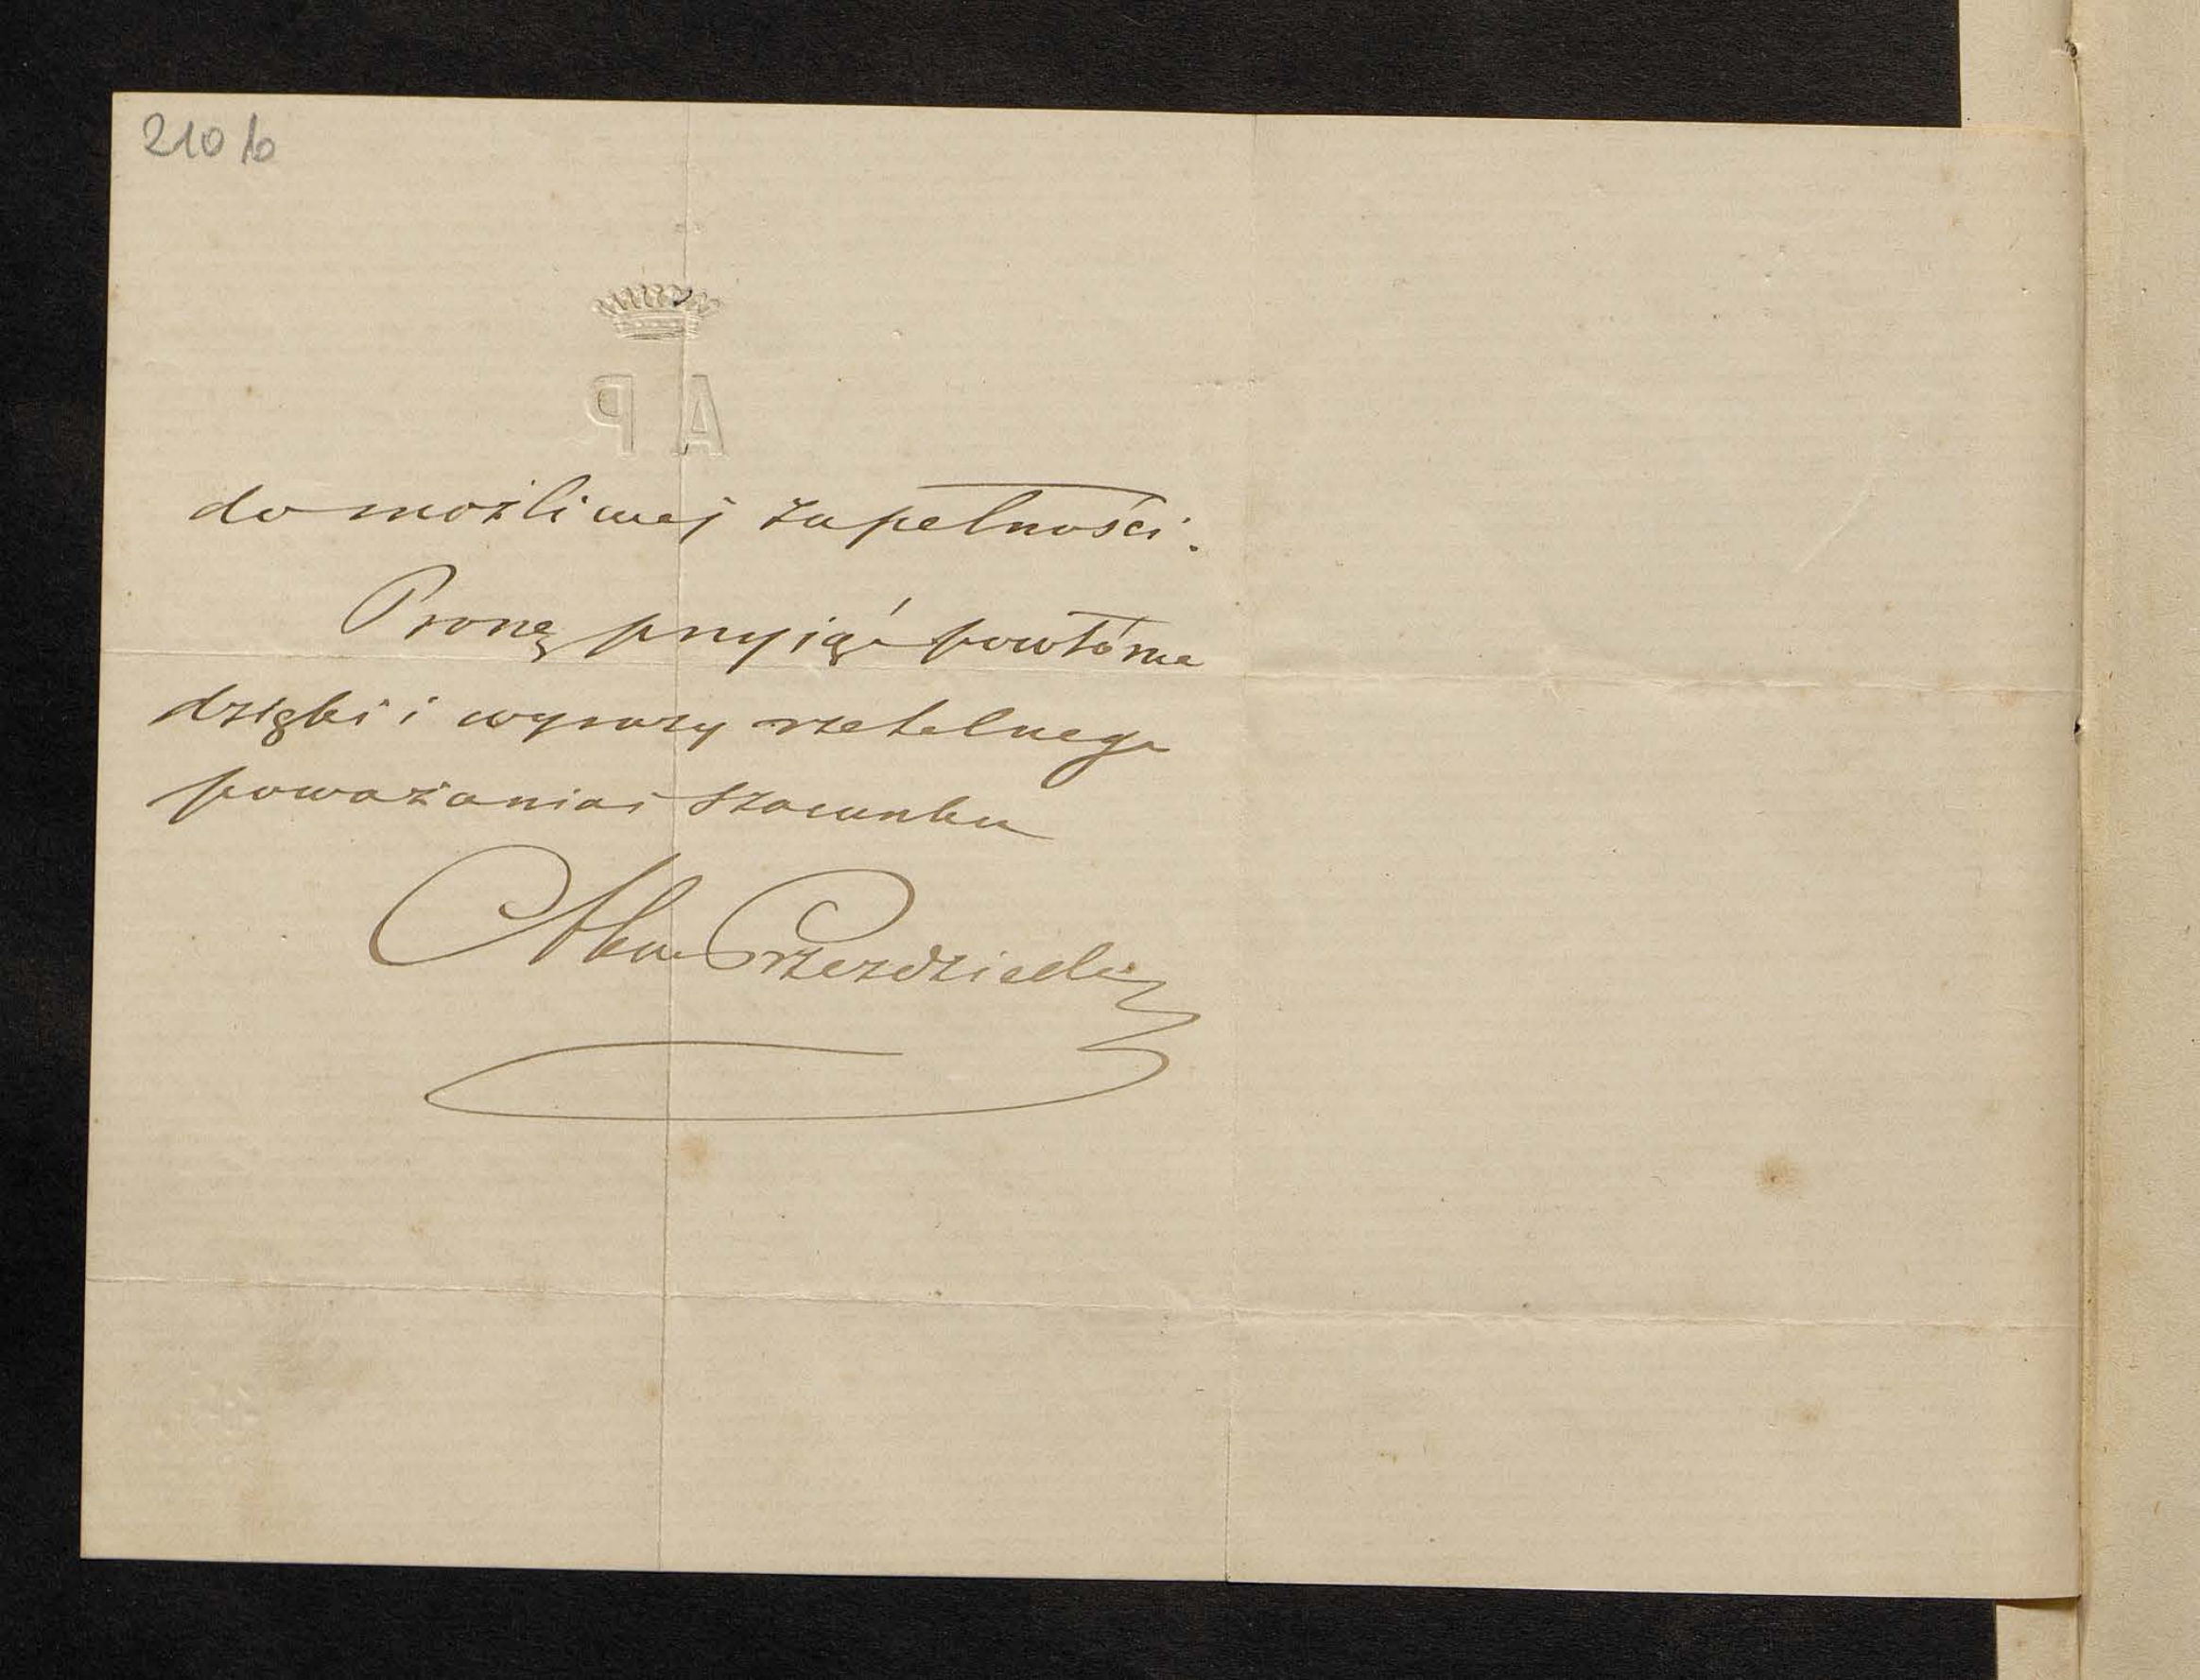 210 b
A P
do możliwej zupełności.
Proszę przyjąć powtórne
dzięki i wyrazy rzetelnego
poważania i szacunku
Alex Przezdziecki